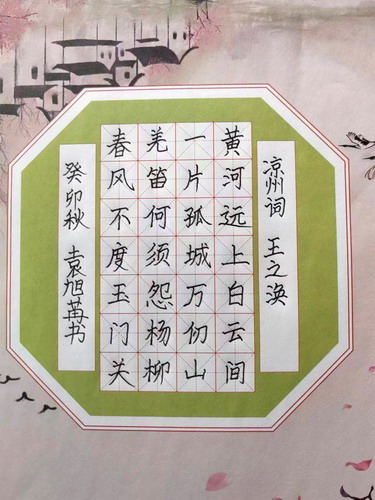 凉州词 王之涣
黄河远上白云间
一片孤城万仞山
羌笛何须怨杨柳
春风不度玉门关
癸卯秋 袁旭苒书